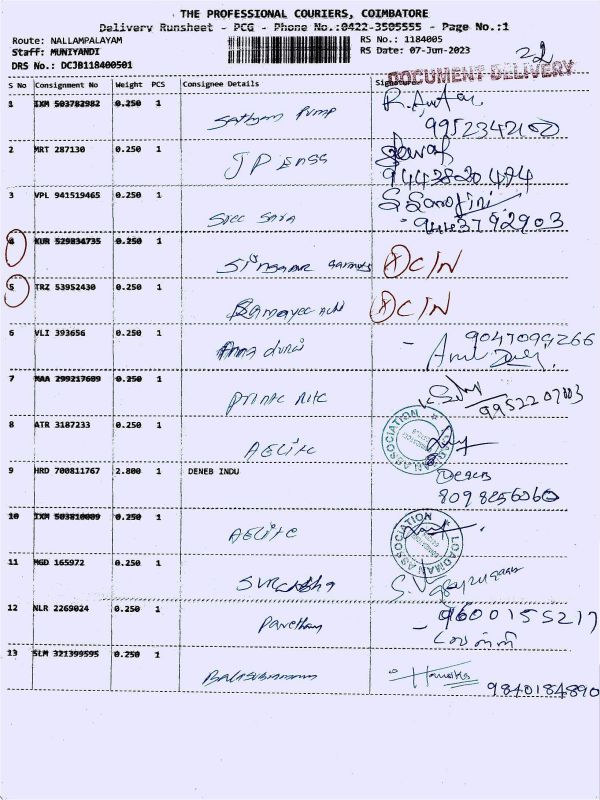 THE PROFESSIONAL COURIERS, COIMBATORE
Delivery Runsheet - PCG - Phone No.:0422-3505555 - Page No.:1
Route: NALLAMPALAYAM RS No.: 1184005
Staff: MUNIYANDI RS Date: 07-Jun-2023
DRS No.: DCJB118400501
22
DOCUMENT DELIVERY
S No Consignment No Weight PCS Consignee Details Signature
1 IXM 503782982 0.250 1 Sathyam Pump
9952342100
2 MRT 287130 0.250 1 JP
9442820494
3 VPL 941519465 0.250 1
9443792903
4 KUR 529834735 0.250 1 Garments C/N
5 TRZ 53952430 0.250 1 C/N
6 VLI 393656 0.250 1 Anna durai 9047099266
7 MAA 299217689 0.250 1
9952207003
8 ATR 3187233 0.250 1 AELite
LOADMAN ASSOCIATION
9 HRD 700811767 2.800 1 DENEB INDU
8098256060
10 IXM 503810009 0.250 1 AELite
LOADMAN ASSOCIATION
11 MGD 165972 0.250 1
12 NLR 2269024 0.250 1 9600155217
13 SLM 321399595 0.250 1
9840184890